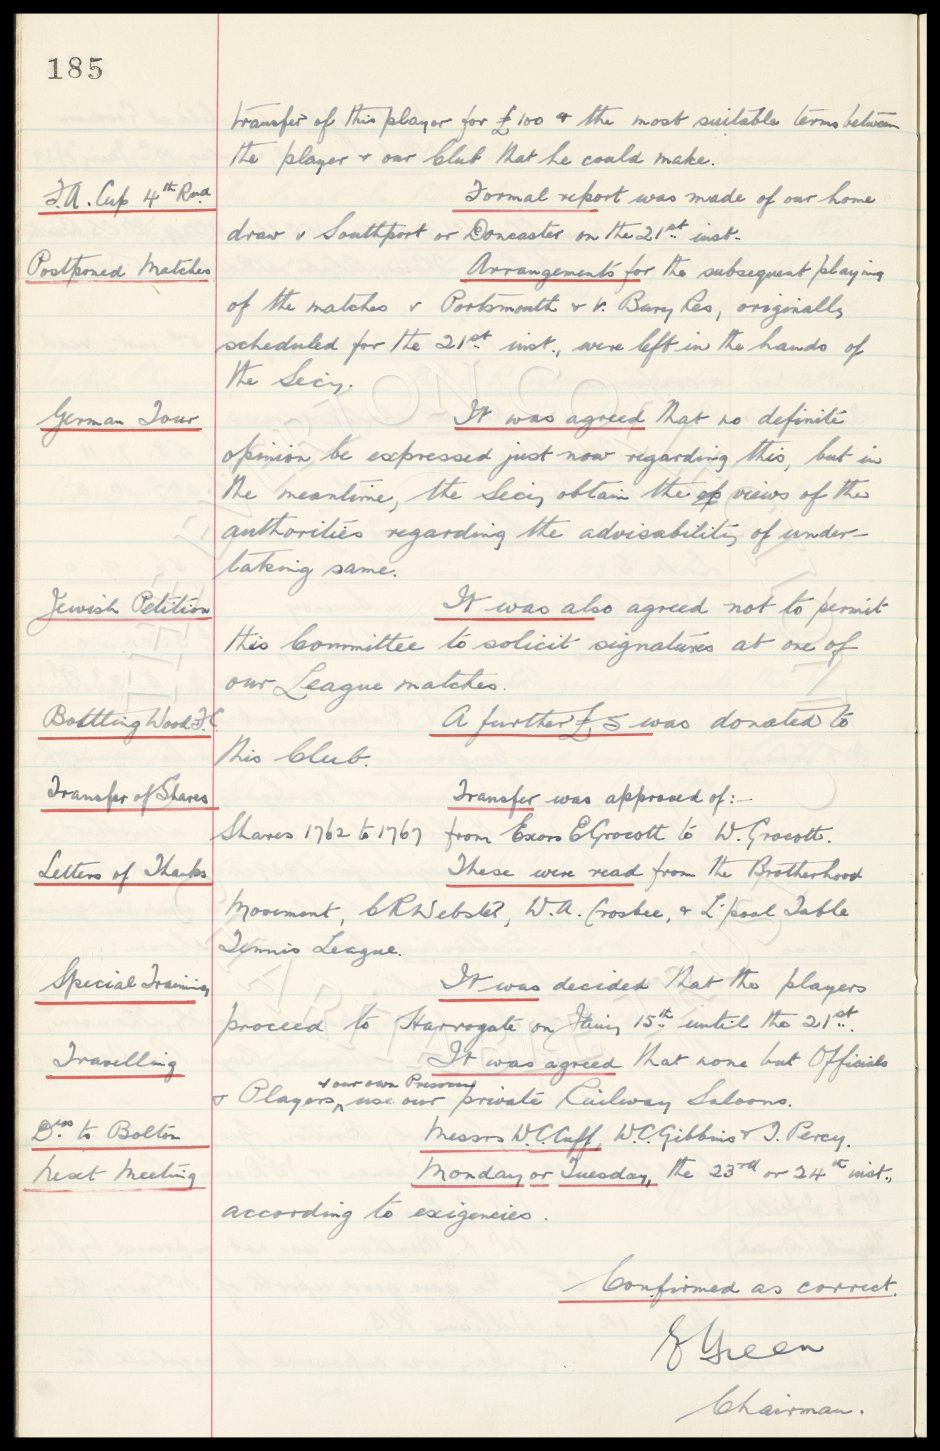 185
transfer of this player for £100 & the most suitable terms between
the player & our Club that he could make.
F.A. Cup 4th Rnd Formal report was made of our home
draw v Southport or Doncaster on the 21st inst.
Postponed Matches Arrangements for the subsequent playing
of the matches v Portsmouth & v. Bury Res, originally
scheduled for the 21st inst., were left in the hands of
the Secy.
German Tour It was agreed that no definite
opinion be expressed just now regarding this, but in
the meantime, the Secy obtain the op views of the
authorities regarding the advisability of under-
taking same.
Jewish Petition It was also agreed not to permit
this Committee to solicit signatures at one of
our League matches.
Bottling Wood F.C. A further £5 was donated to
this Club.
Transfer of Shares Transfer was approved of:-
Shares 1762 to 1767 from Exors E Grocott to W. Grocott.
Letters of Thanks These were read from the Brotherhood
Movement, C R Webster, W.A. Crosbee, & L'pool Table
Tennis League.
Special Training It was decided that the players
proceed to Harrogate on Sunday 15th until the 21st.
Travelling It was agreed that none but Officials
& our own Pressmen
& Players, use our private Railway Saloons.
Drs to Bolton Messrs W.C. Cuff, W.C. Gibbins & T. Percy.
Next Meeting Monday or Tuesday, the 23rd or 24th inst.,
according to exigencies.
Confirmed as correct.
E Green
Chairman.